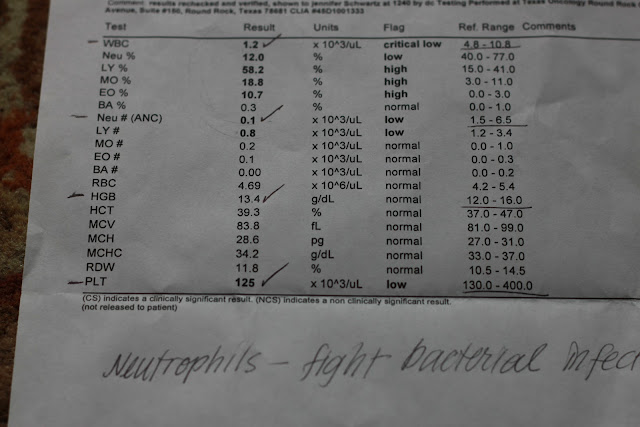 Comment: results rechecked and verified, shown to jennifer Schwartz at 1240 by dc Testing Performed at Texas Oncology Round Rock
Avenue, Suite #150, Round Rock, Texas 78681 CLIA #45D1001333
Test Result Units Flag Ref. Range Comments
WBC 1.2 x 10^3/uL critical low 4.8 - 10.8
Neu % 12.0 % low 40.0 - 77.0
LY % 58.2 % high 15.0 - 41.0
MO % 18.8 % high 3.0 - 11.0
EO % 10.7 % high 0.0 - 3.0
BA % 0.3 % normal 0.0 - 1.0
Neu # (ANC) 0.1 x 10^3/uL low 1.5 - 6.5
LY # 0.8 x 10^3/uL low 1.2 - 3.4
MO # 0.2 x 10^3/uL normal 0.0 - 1.0
EO # 0.1 x 10^3/uL normal 0.0 - 0.3
BA # 0.00 x 10^3/uL normal 0.0 - 0.2
RBC 4.69 x 10^6/uL normal 4.2 - 5.4
HGB 13.4 g/dL normal 12.0 - 16.0
HCT 39.3 % normal 37.0 - 47.0
MCV 83.8 fL normal 81.0 - 99.0
MCH 28.6 pg normal 27.0 - 31.0
MCHC 34.2 g/dL normal 33.0 - 37.0
RDW 11.8 % normal 10.5 - 14.5
PLT 125 x 10^3/uL low 130.0 - 400.0
(CS) indicates a clinically significant result. (NCS) indicates a non clinically significant result.
(not released to patient)
Neutrophils - fight bacterial infec